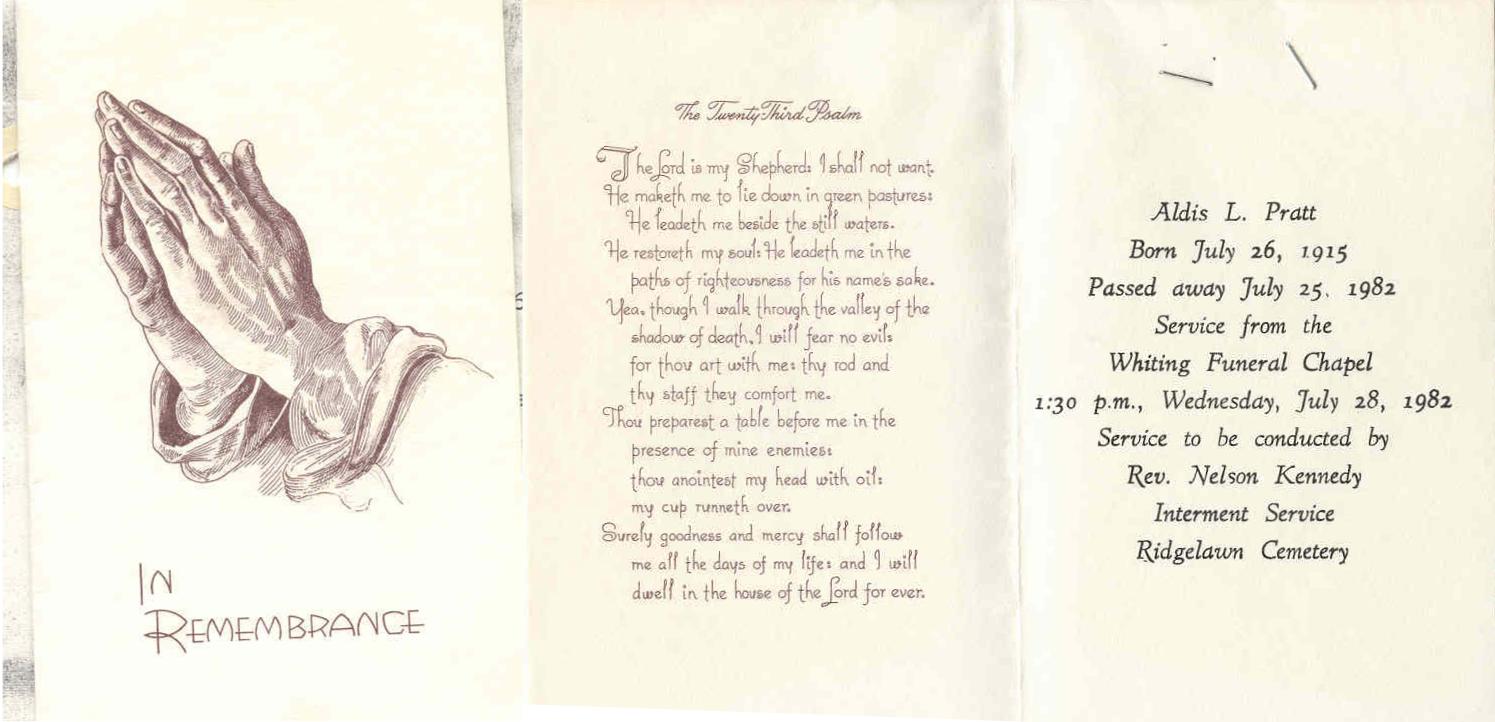 IN
REMEMBRANCE
The Twenty-Third Psalm
The Lord is my Shepherd: I shall not want.
He maketh me to lie down in green pastures:
He leadeth me beside the still waters.
He restoreth my soul: He leadeth me in the
paths of righteousness for his name's sake.
Yea, though I walk through the valley of the
shadow of death, I will fear no evil:
for thou art with me: thy rod and
thy staff they comfort me.
Thou preparest a table before me in the
presence of mine enemies:
thou anointest my head with oil:
my cup runneth over.
Surely goodness and mercy shall follow
me all the days of my life: and I will
dwell in the house of the Lord for ever.
Aldis L. Pratt
Born July 26, 1915
Passed away July 25, 1982
Service from the
Whiting Funeral Chapel
1:30 p.m., Wednesday, July 28, 1982
Service to be conducted by
Rev. Nelson Kennedy
Interment Service
Ridgelawn Cemetery